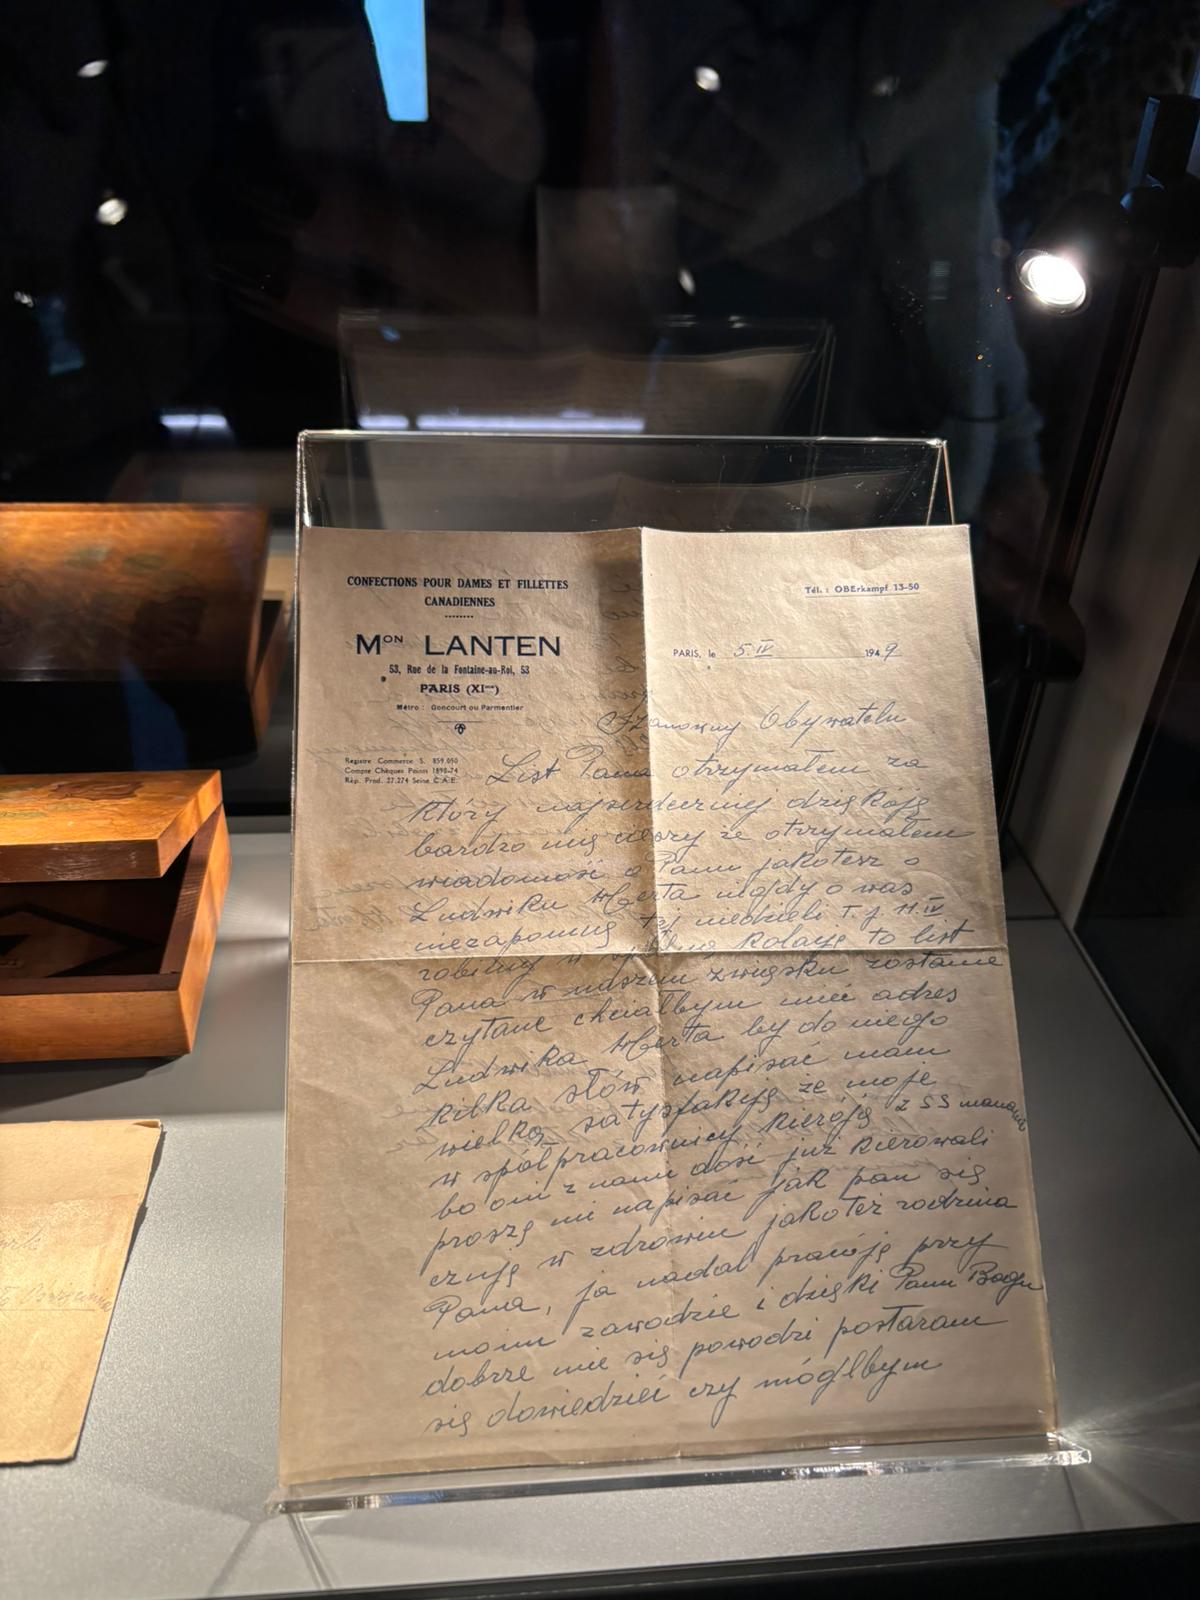 CONFECTIONS POUR DAMES ET FILLETTES
CANADIENNES
Mᴼᴺ LANTEN
53, Rue de la Fontaine-au-Roi, 53
PARIS (XIᵐᵉ)
Métro : Goncourt ou Parmentier
Registre Commerce S. 859.050
Compte Chèques Postaux 1898-74
Rép. Prod. 27.274 Seine C.A.E.
Tél. : OBErkampf 13-50
PARIS, le 5.IV 1949
Szanowny Obywatelu
List Pana otrzymałem za
który najserdeczniej dzięküję
bardzo mię cieszy że otrzymałem
wiadomość o Panu jakotesz o
Ludwiku nigdy o was
niezapomnę tej niedzieli T. j 11.IV
robimy w kolacje to list
Pana w naszem zwięsku zostanie
czytane chciałbym mieć adres
Ludwika by do niego
kilka słów napisać mam
wielką satysfakiję że moje
w spół pracownicy kieróją z SS manami
bo oni z nami dość już kierowali
proszę mi napisać jak pan się
czuję w zdrowiu jakoteż rodzina
Pana, ja nadal pracóję przy
moim zawodzie i dzięki Panu Bogu
dobrze mie się powodzi postaram
się dowiedzieć czy mógłbym